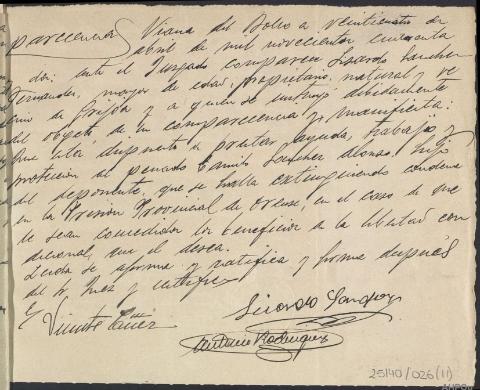 parecencia} Viana del Bollo a veinticuatro de
abril de mil novecientos cincuenta
dos: ante el Juzgado comparece Lisardo Sanchez
Fernandez, mayor de edad, propietario, natural y ve
cino de Grijoa y a quien se instruyó debidamente
del objeto de su comparecencia y manifiesta:
Que está dispuesto a prestar ayuda, trabajo y
protección al penado Camilo Sanchez Alonso, hijo
del deponente, que se halla extinguiendo condena
en la Prisión Provincial de Orense, en el caso de que
le sean concedidos los beneficios a la libertad con
dicional, que el desea.
Leida se afirma y ratifica y firma después
del Sr. Juez y certifico
Lisardo Sanchez
Antonio Rodriguez
25140/026(11)